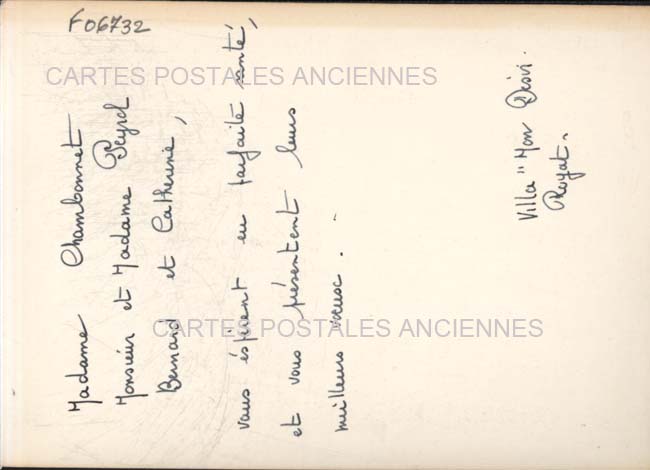 F06732
CARTES POSTALES ANCIENNES
Madame Chambonnet
Monsieur et Madame Peyrol
Bernard et Catherine,
vous éspèrent en parfaite santé,
et vous présentent leurs
meilleurs voeux.
CARTES POSTALES ANCIENNES
Villa "Mon Désir.
Royat.